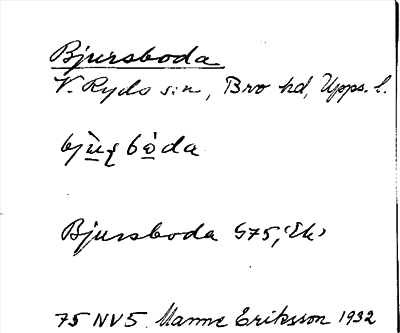 Bjursboda
V. Ryds sn, Bro hd, Upps. l.
Bjursboda G75, Ek
75 NV5 Manne Eriksson 1932